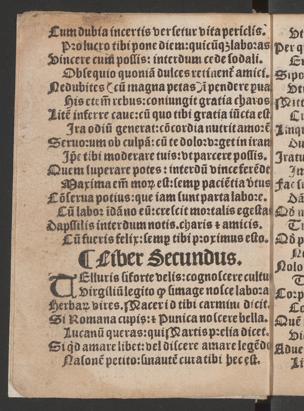 Cum dubia incertis versetur vita periclis.
Pro lucro tibi pone diem: quicūqꝫ laboras
Vincere cum possis: interdum cede sodali.
Obsequio quoniā dulces retinent̄ amici.
Ne dubites (cū magna petas) īpendere pua
His etem̄ rebus: coniungit gratia charos
Litē inferre caue: cū quo tibi gratia iūcta est
Ira odiū generat: cōcordia nutrit amorē
Seruorum ob culpā: cū te dolor vrget in iram
Ip̄e tibi moderare tuis: vt parcere possis.
Quem superare potes: interdū vince ferēdo
Maxima em̄ morꝫ est: semp paciētia vtus
Cōserua potius: que iam sunt parta labore.
Cū labor ī dāno eū: crescit mortalis egestas
Dapsilis interdum notis. charis ⁊ amicis.
Cū fueris felix: semp tibi proximus esto.
¶ Liber Secundus.
Telluris si forte velis: cognoscere cultu
Virgiliū legito qꝫ si mage nosce labora
Herbaꝝ vires. Macer id tibi carmini dicit.
Si Romana cupis: ⁊ Punica noscere bella.
Lucanū queras: qui Martis prelia dicet.
Si qd amare libet: vel discere amare legēdo
Nasonē petito: sin autē cura tibi hec est.